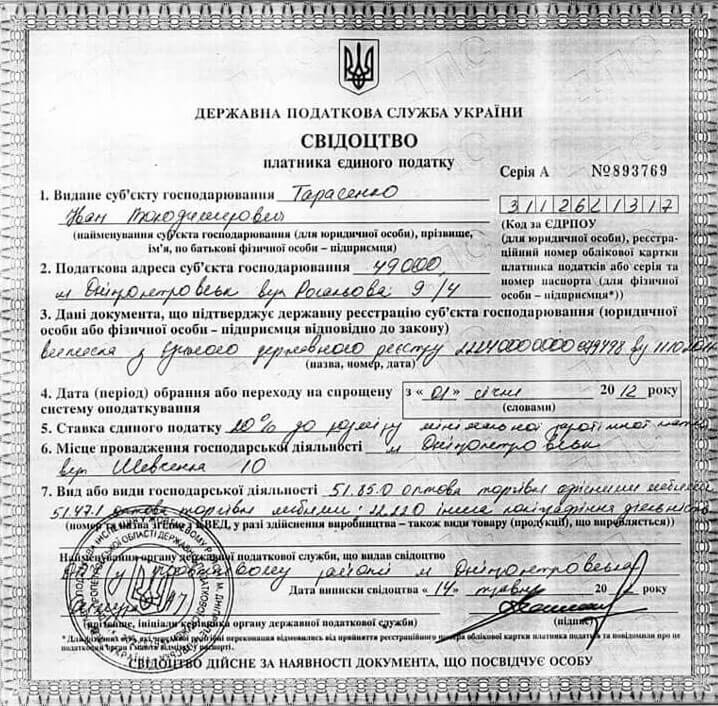 ДЕРЖАВНА ПОДАТКОВА СЛУЖБА УКРАЇНИ
СВІДОЦТВО
платника єдиного податку
Серія А №893769
1. Видане суб'єкту господарювання Тарасенко
Іван Володимирович
(найменування суб'єкта господарювання (для юридичної особи), прізвище,
ім'я, по батькові фізичної особи – підприємця)
3112621317
(Код за ЄДРПОУ
(для юридичної особи), реєстра-
ційний номер облікової картки
платника податків або серія та
номер паспорта (для фізичної
особи – підприємця*))
2. Податкова адреса суб'єкта господарювання 49000,
м Дніпропетровськ вул 9/4
3. Дані документа, що підтверджує державну реєстрацію суб'єкта господарювання (юридичної
особи або фізичної особи – підприємця відповідно до закону)
виписка з Єдиного державного реєстру
(назва, номер, дата)
4. Дата (період) обрання або переходу на спрощену
систему оподаткування
з « 01 » січня 2012 року
(словами)
5. Ставка єдиного податку до розміру мінімальної заробітної плати
6. Місце провадження господарської діяльності м Дніпропетровськ
вул Шевченка 10
7. Вид або види господарської діяльності 51.85.0 оптова торгівля офісними меблями
51.47.1 оптова торгівля меблями інша діяльність
(номер та назва згідно з КВЕД, у разі здійснення виробництва – також види товару (продукції), що виробляється))
Найменування органу державної податкової служби, що видав свідоцтво
у районі м Дніпропетровська
Дата виписки свідоцтва « 14 » травня 2012 року
(прізвище, ініціали керівника органу державної податкової служби)
(підпис)
*Для фізичних осіб, які через свої релігійні переконання відмовились від прийняття реєстраційного номера облікової картки платника податків та повідомили про це
податковий орган і мають відмітку у паспорті.
СВІДОЦТВО ДІЙСНЕ ЗА НАЯВНОСТІ ДОКУМЕНТА, ЩО ПОСВІДЧУЄ ОСОБУ